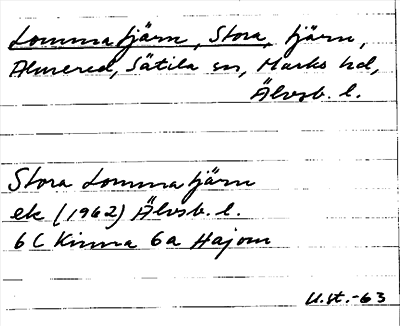 Lommatjärn, Stora, tjärn,
Almered, Sätila sn, Marks hd,
Älvsb. l.
Stora Lommatjärn
ek (1962) Älvsb. l.
6 C Kinna 6a Hajom
U.st.-63